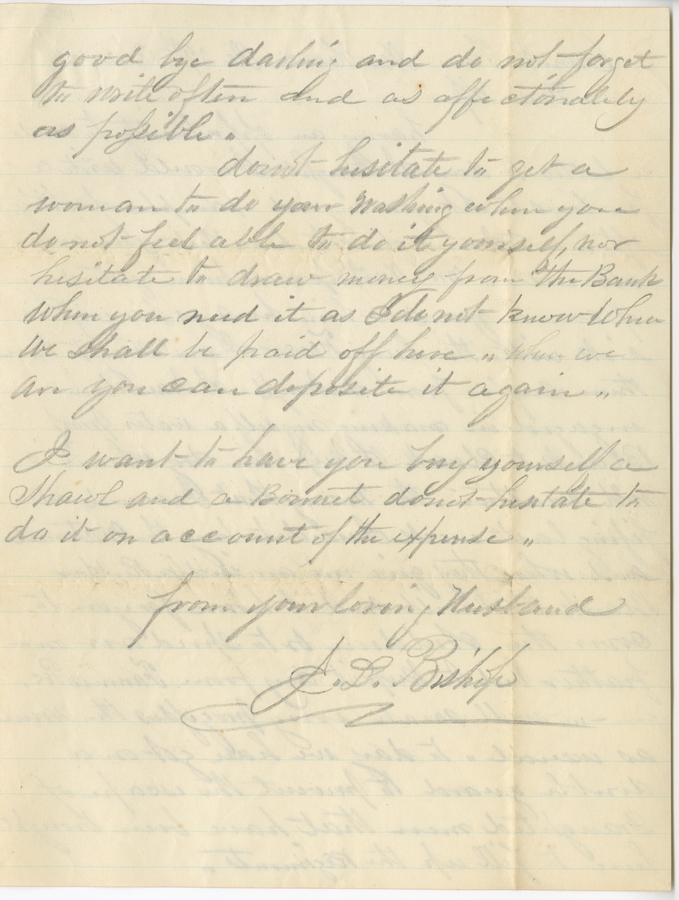 good bye darling and do not forget
to write often and as affectionately
as possible.
donot hesitate to get a
woman to do your Washing when you
do not feel able to do it yourself, nor
hesitate to draw money from the Bank
When you need it as I do not know When
We Shall be paid off here „ When we
are you can deposite it again „
I want to have you buy yourself a
Shawl and a Bonnet donot hesitate to
do it on account of the expense „
from your loving Husband
J. D. Bishop